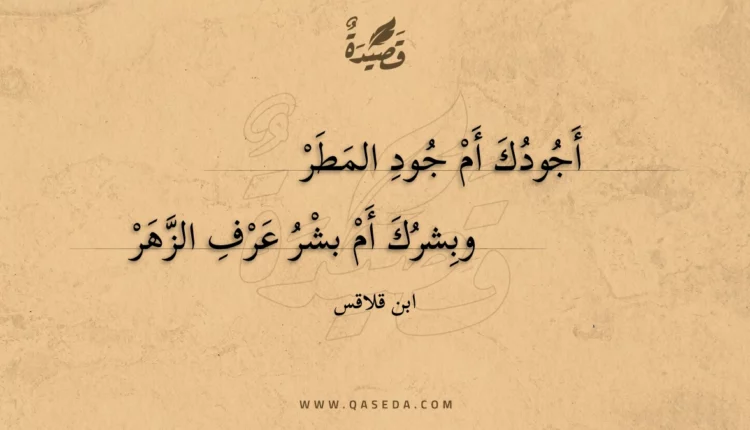 قَصِيْدَةٌ
أَجُودُكَ أَمْ جُودِ المَطَرْ
وبِشرُكَ أَمْ بشْرُ عَرْفِ الزَّهَرْ
ابن قلاقس
WWW.QASEDA.COM